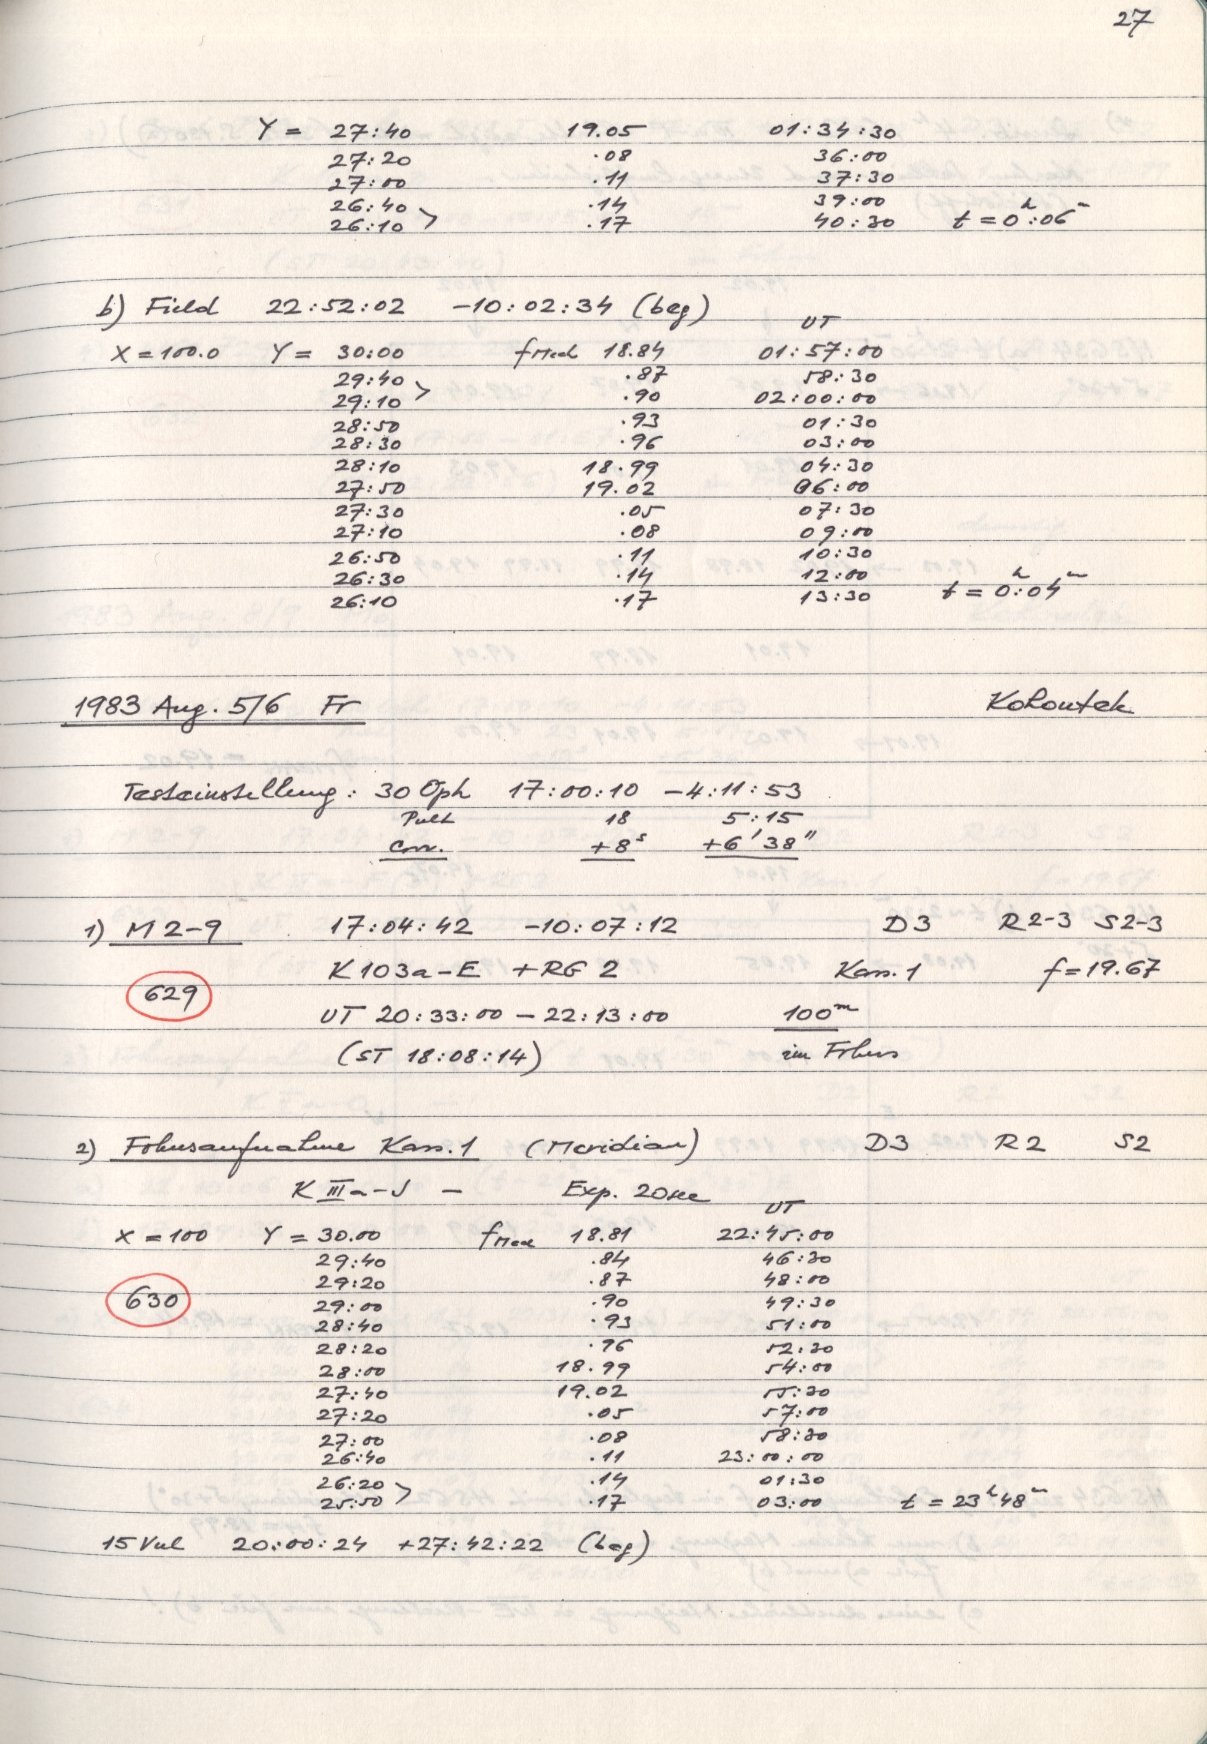 27
Y = 27:40 19.05 01:34:30
27:20 .08 36:00
27:00 .11 37:30
26:40 .14 39:00
26:10 > .17 40:30 t = 0h:06m
b) Field 22:52:02 -10:02:34 (beg)
UT
X = 100.0 Y = 30:00 fMed 18.84 01:57:00
29:40 .87 58:30
29:10 > .90 02:00:00
28:50 .93 01:30
28:30 .96 03:00
28:10 18.99 04:30
27:50 19.02 06:00
27:30 .05 07:30
27:10 .08 09:00
26:50 .11 10:30
26:30 .14 12:00
26:10 .17 13:30 t = 0h:04m
1983 Aug. 5/6 Fr Kohoutek
Testeinstellung: 30 Oph 17:00:10 -4:11:53
Pult 18 5:15
Corr. +8s +6'38"
1) M 2-9 17:04:42 -10:07:12 D3 R2-3 S2-3
K 103a-E + RG 2 Kass.1 f = 19.67
629
UT 20:33:00 - 22:13:00 100m
(ST 18:08:14) im Fokus
2) Fokusaufnahme Kass.1 (Meridian) D3 R2 S2
K IIIa-J - Exp. 20sec
UT
X = 100 Y = 30.00 fMed 18.81 22:45:00
29:40 .84 46:30
29:20 .87 48:00
630
29:00 .90 49:30
28:40 .93 51:00
28:20 .96 52:30
28:00 18.99 54:00
27:40 19.02 55:30
27:20 .05 57:00
27:00 .08 58:30
26:40 .11 23:00:00
26:20 .14 01:30
25:50 > .17 03:00 t = 23h48m
15 Vul 20:00:24 +27:42:22 (beg)